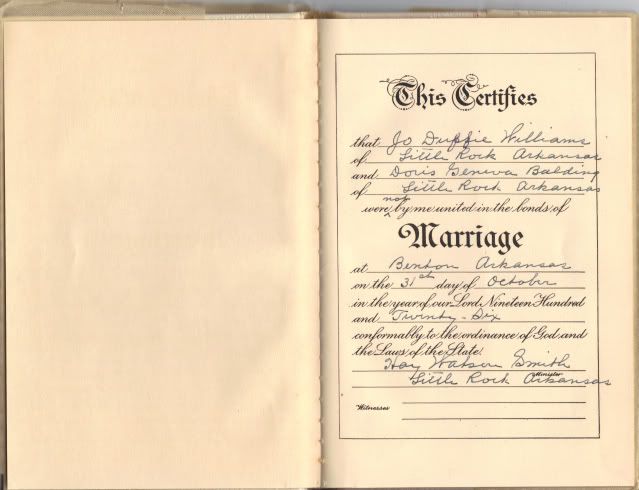 This Certifies
that Jo Duffie Williams
of Little Rock Arkansas
and Doris Geneva Balding
of Little Rock Arkansas
not
were ^ by me united in the bonds of
Marriage
at Benton Arkansas
on the 31st day of October
in the year of our Lord Nineteen Hundred
and Twenty-Six
conformably to the ordinance of God and
the Laws of the State.
Hay Watson Smith
Minister
Little Rock Arkansas
Witnesses